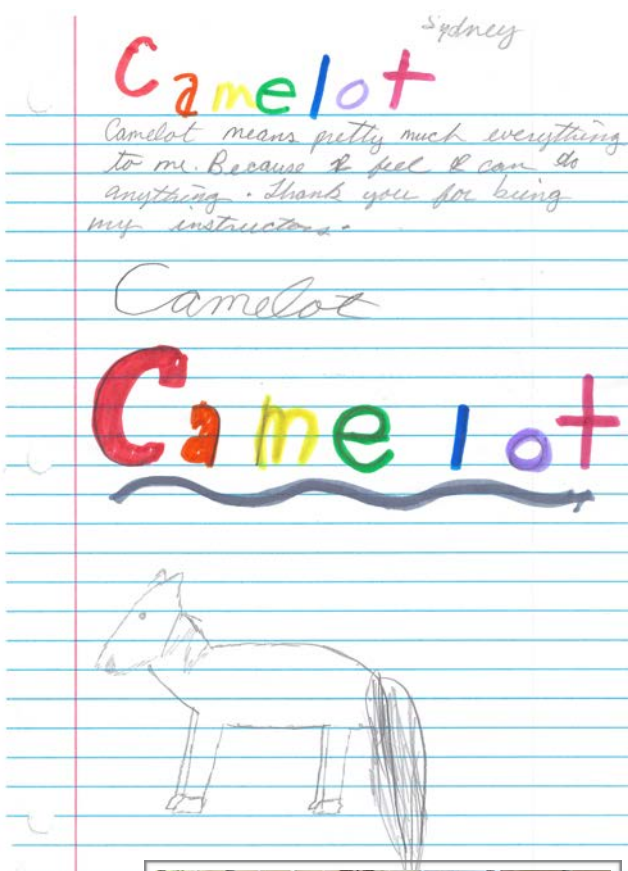 Sydney
Camelot
Camelot means pretty much everything
to me. Because I feel I can do
anything. Thank you for being
my instructors.
Camelot
Camelot